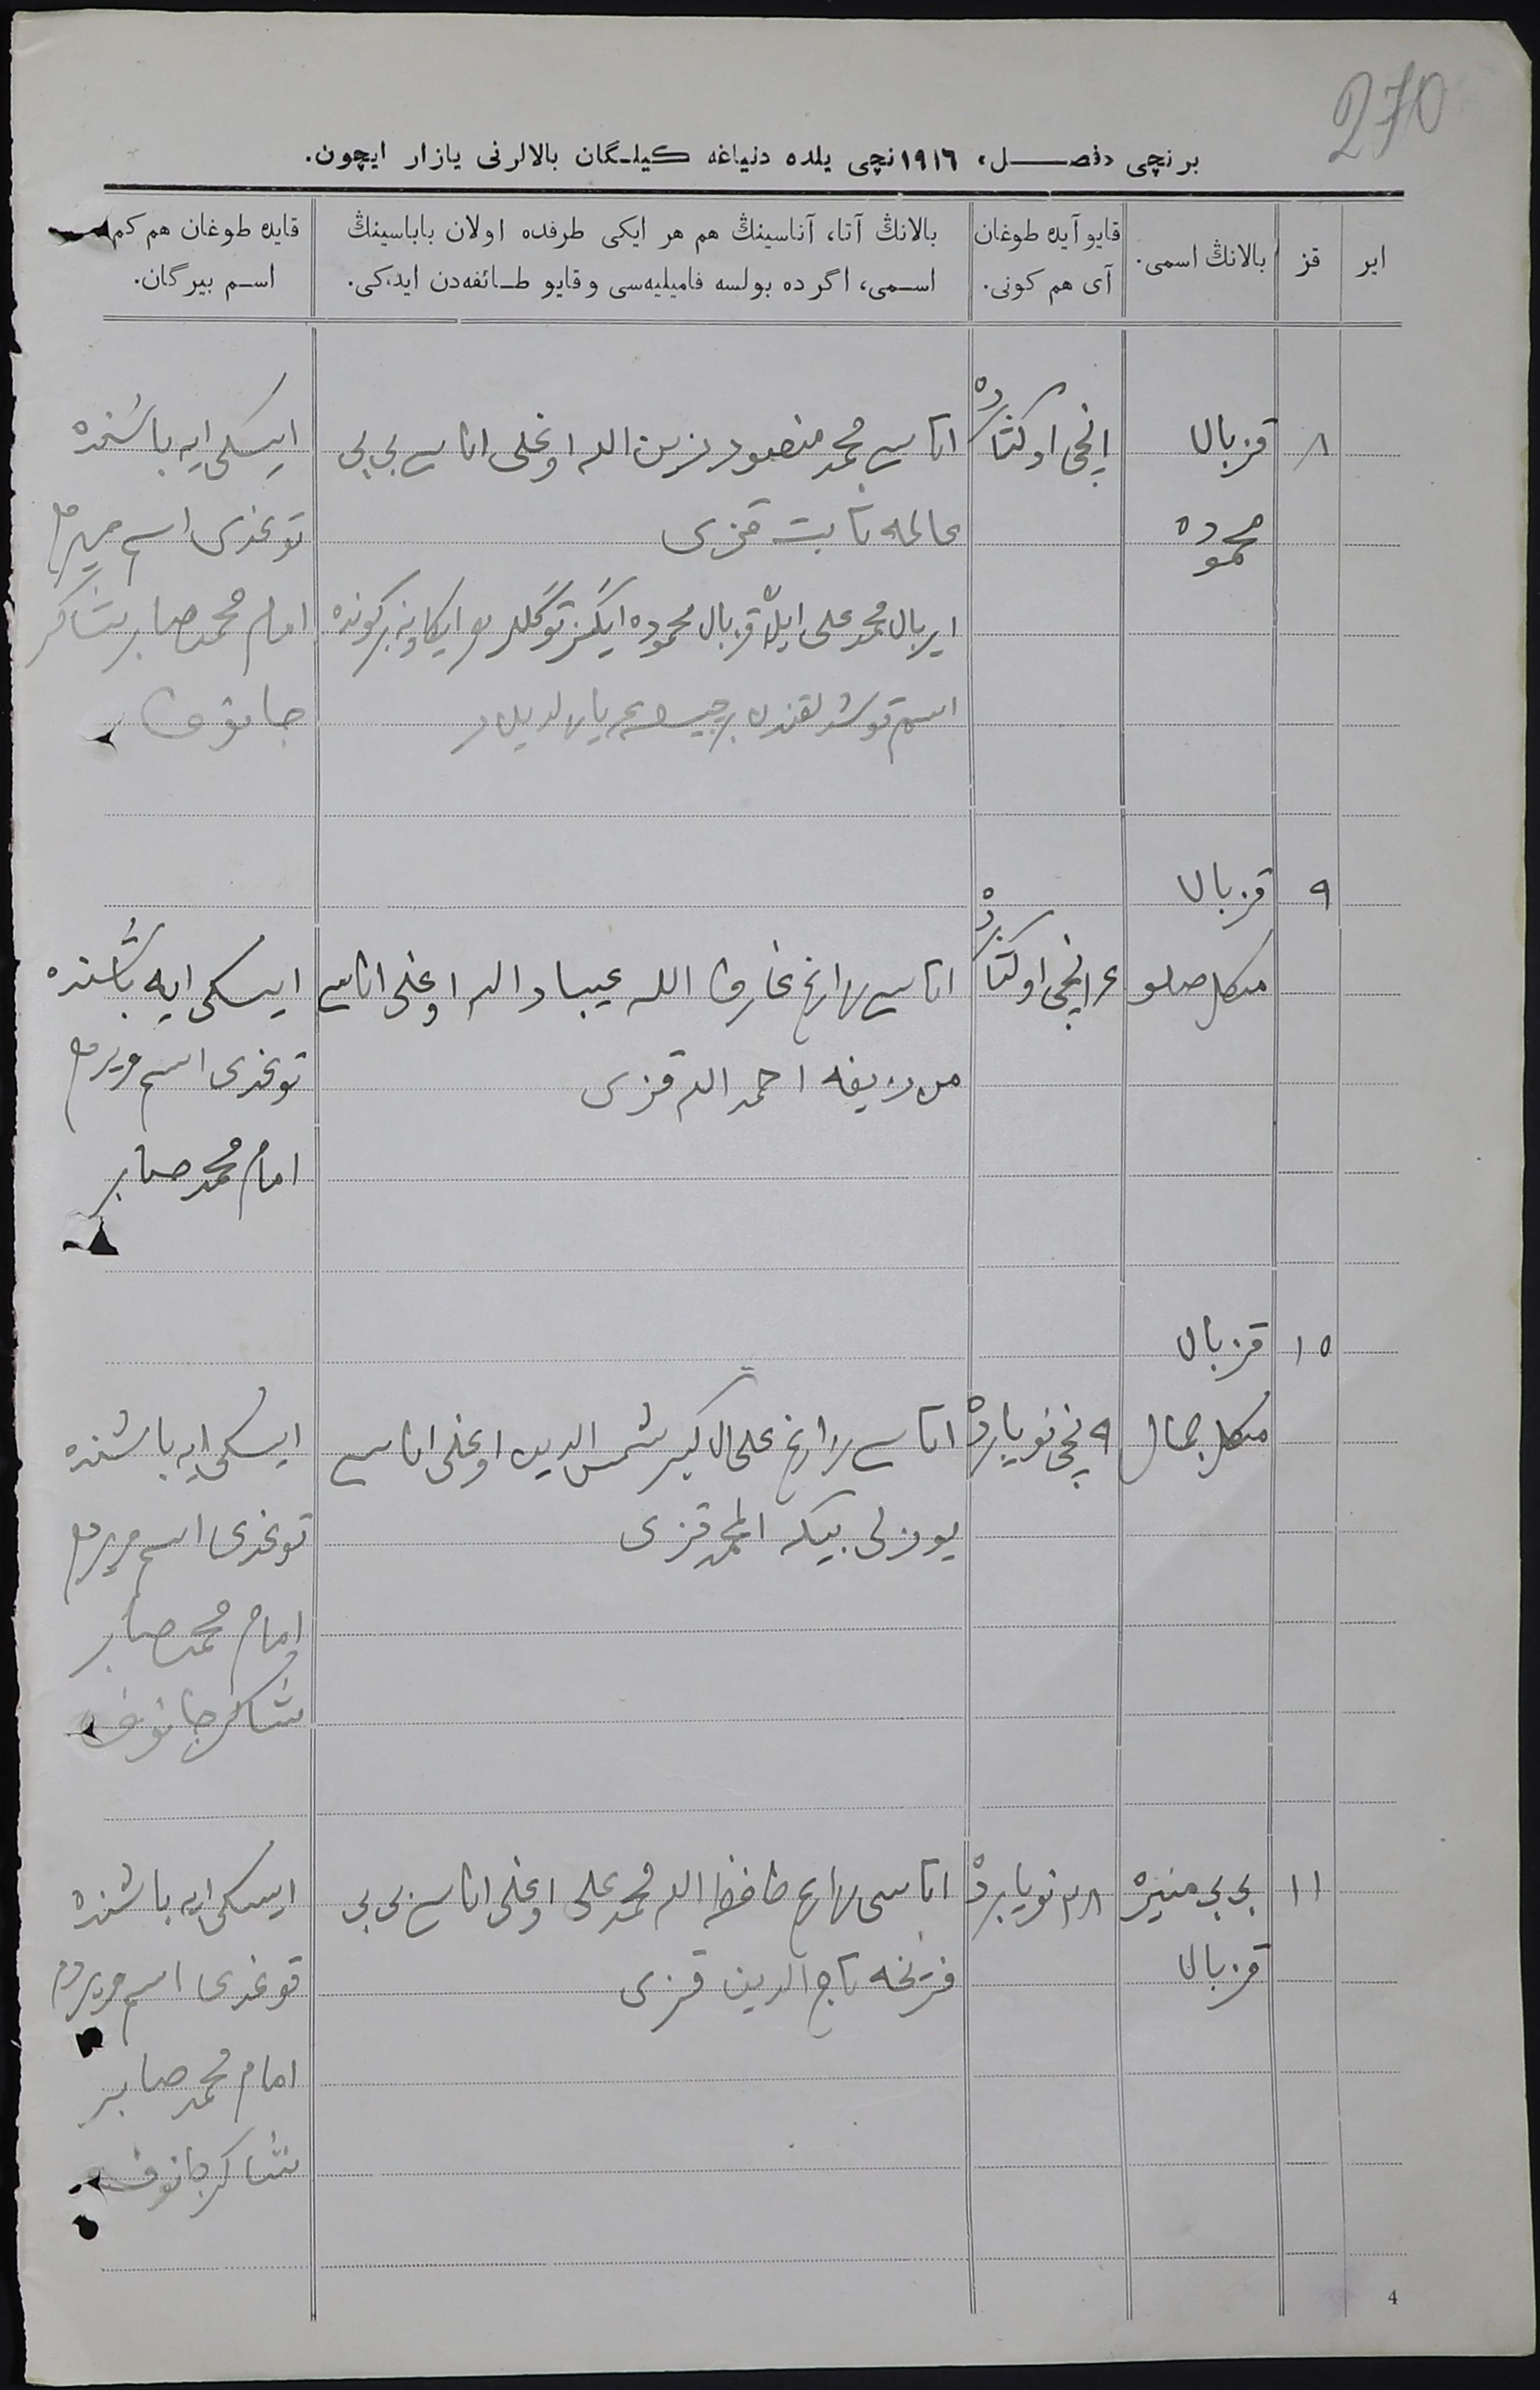 270
برنچی «فصل» ١٩١٦نچی یلده دنیاغه کیلگان بالالرنی یازار ایچون.
ایر
قز
بالانڭ اسمی.
قایو آیده طوغان
آی هم کونی.
بالانڭ آتا، آناسینڭ هم هر ایکی طرفده اولان باباسینڭ
اسمی، اگرده بولسه فامیلیه‌سی و قایو طائفه‌دن ایدکی.
قایده طوغان هم کم
اسم بیرگان.
٨
قز بالا
محموده
انچی اوکتابرده
اتاسی محمد منصور زین الله اوغلی اناسی بی بی
عالمه ثابت قزی
ایر بالا محمد علی ایله قز بالا محموده ایگز
ایسکی ایه باشنده
توغدی اسم بیردم
امام محمد صابر شاکر
جانوف
٩
قز بالا
مکمل صلو
انچی اوکتابرده
اتاسی عبادالله اوغلی اناسی
احمد الله قزی
ایسکی ایه باشنده
توغدی اسم بیردم
امام محمد صابر
١٠
قز بالا
مکمل جمال
٩ نچی نویابرده
اتاسی علی الاکبر شمس الدین اوغلی اناسی
بیکه قزی
ایسکی ایه باشنده
توغدی اسم بیردم
امام محمد صابر
شاکرجانوف
١١
بی بی منیره
قز بالا
٢٨ نویابرده
اتاسی حافظ الله محمد علی اوغلی اناسی بی بی
تاج الدین قزی
ایسکی ایه باشنده
توغدی اسم بیردم
امام محمد صابر
شاکرجانوف
4